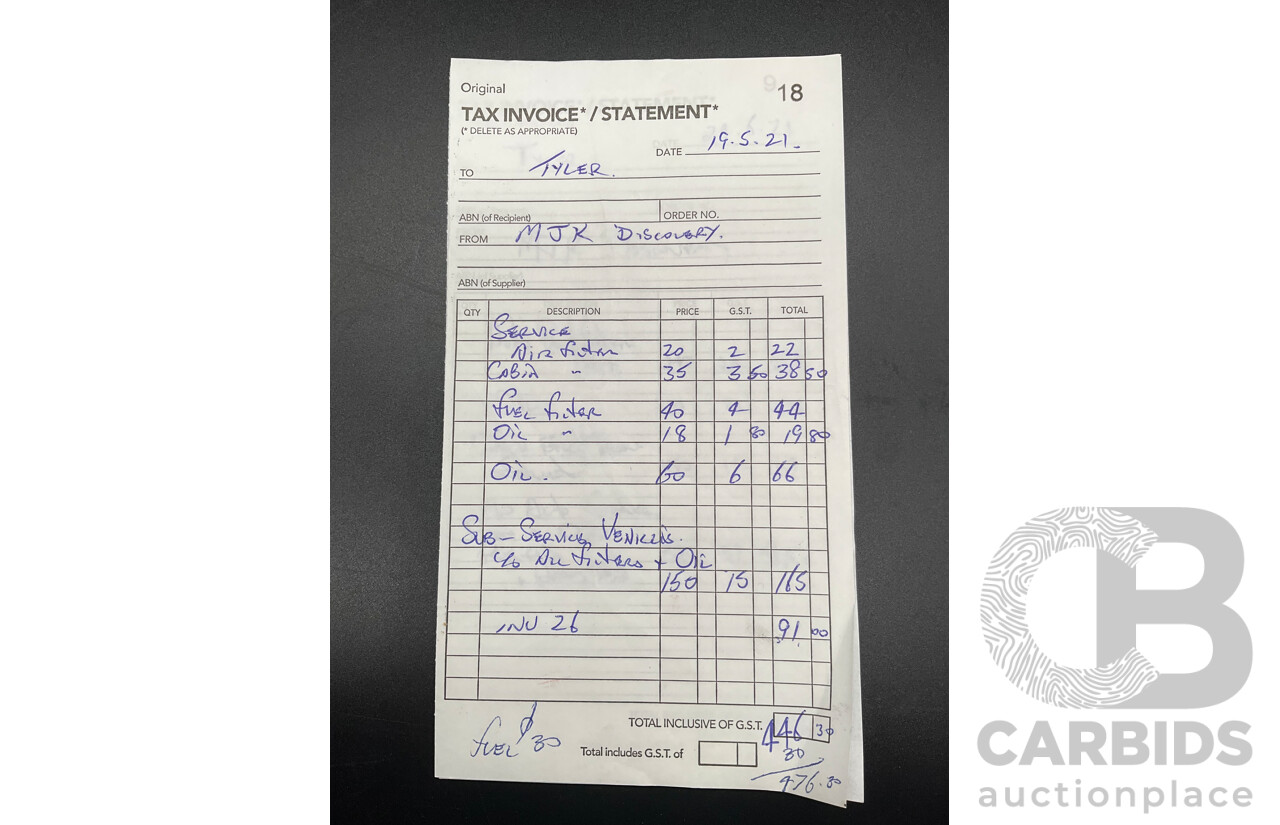 Original
18
TAX INVOICE* / STATEMENT*
(* DELETE AS APPROPRIATE)
DATE 19.5.21.
TO TYLER.
ABN (of Recipient) ORDER NO.
FROM MJK DISCOVERY.
ABN (of Supplier)
QTY DESCRIPTION PRICE G.S.T. TOTAL
SERVICE
AIR FILTER 20 2 22
CABIN " 35 3 50 38 50
FUEL FILTER 40 4 44
OIL " 18 1 80 19 80
OIL. 60 6 66
SUB-SERVICE VEHICLES.
C/O AIR FILTERS + OIL
150 15 165
INV 26 91 00
TOTAL INCLUSIVE OF G.S.T. 446 30
FUEL $30
Total includes G.S.T. of
30
476.30
CB
CARBIDS
auctionplace